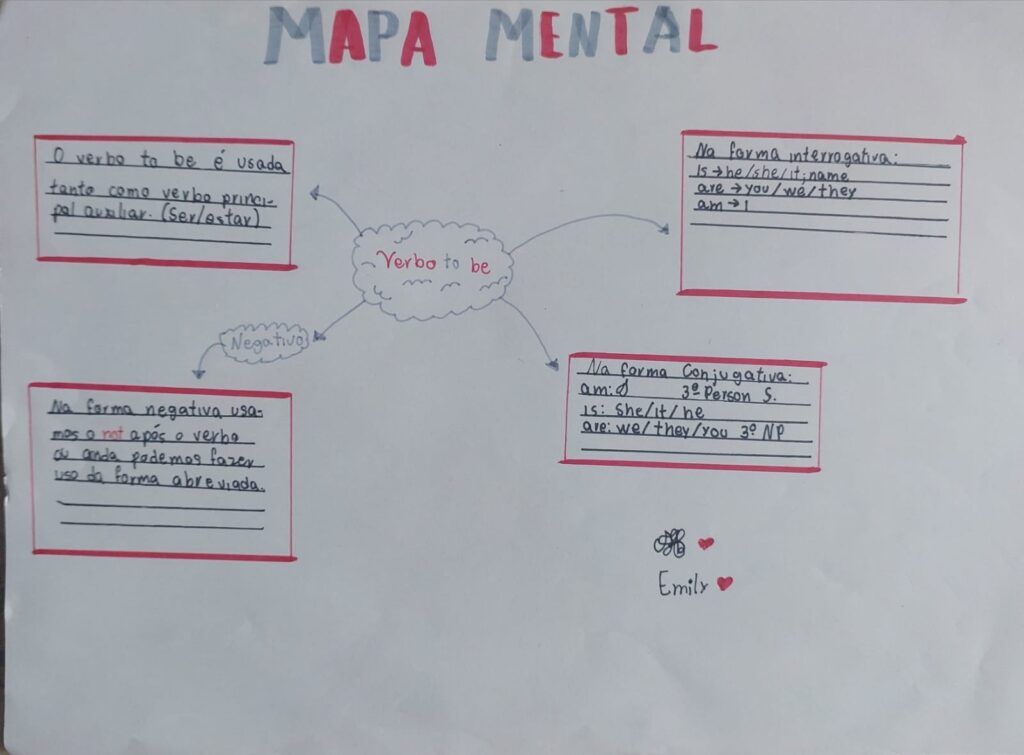 MAPA MENTAL
O verbo to be é usada
tanto como verbo princi-
pal auxiliar. (Ser/estar)
Na forma interrogativa:
is → he/she/it, name
are → you/we/they
am → I
Verbo to be
Negativo
Na forma negativa usa-
mos o not após o verbo
ou anda podemos fazer
uso da forma abreviada.
Na forma Conjugativa:
am: 3ª Person S.
is: She/it/he
are: we/they/you 3ª NP
Emily